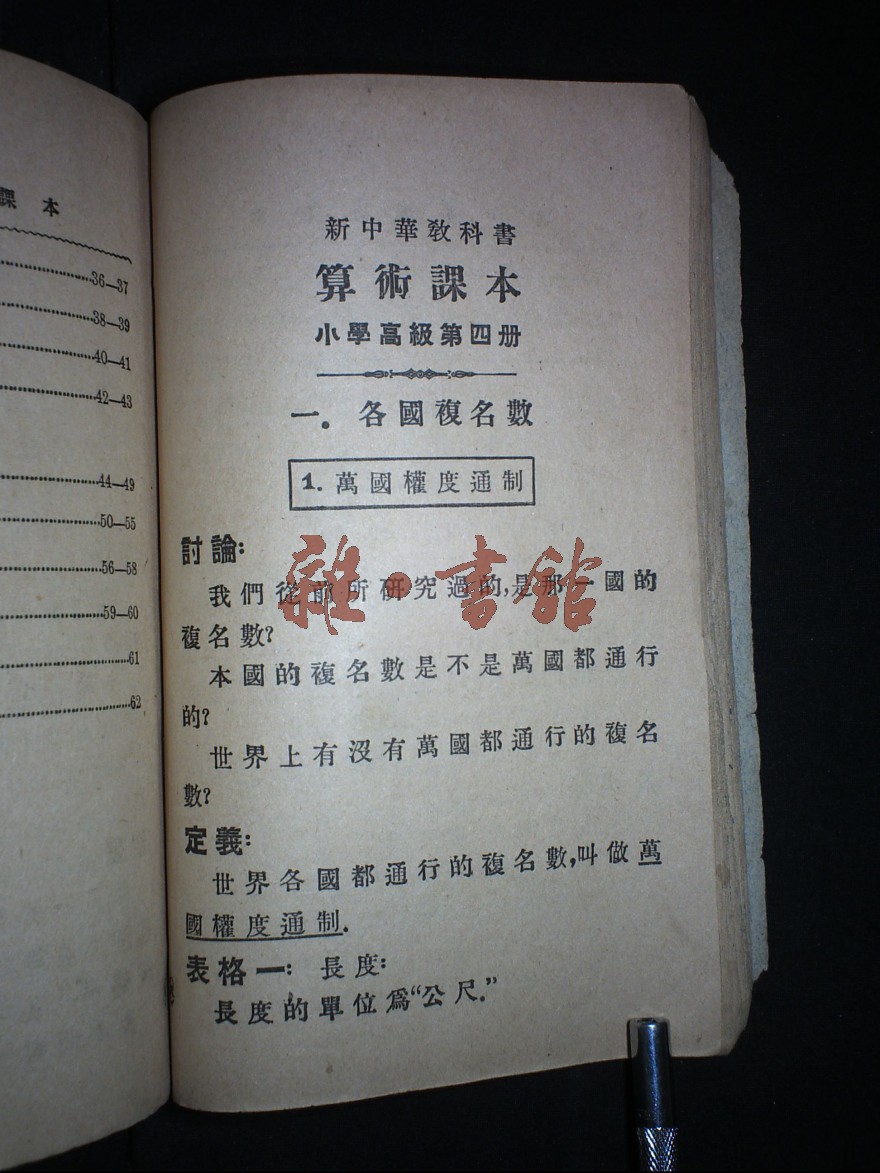 課本
36—37
38—39
40—41
42—43
44—49
50—55
56—58
59—60
61
62
新中華教科書
算術課本
小學高級第四册
一。各國複名數
1. 萬國權度通制
討論:
我們從前所研究過的,是那一國的
複名數?
本國的複名數是不是萬國都通行
的?
世界上有沒有萬國都通行的複名
數?
定義:
世界各國都通行的複名數,叫做萬
國權度通制.
表格一: 長度:
長度的單位爲“公尺.”
雜·書館